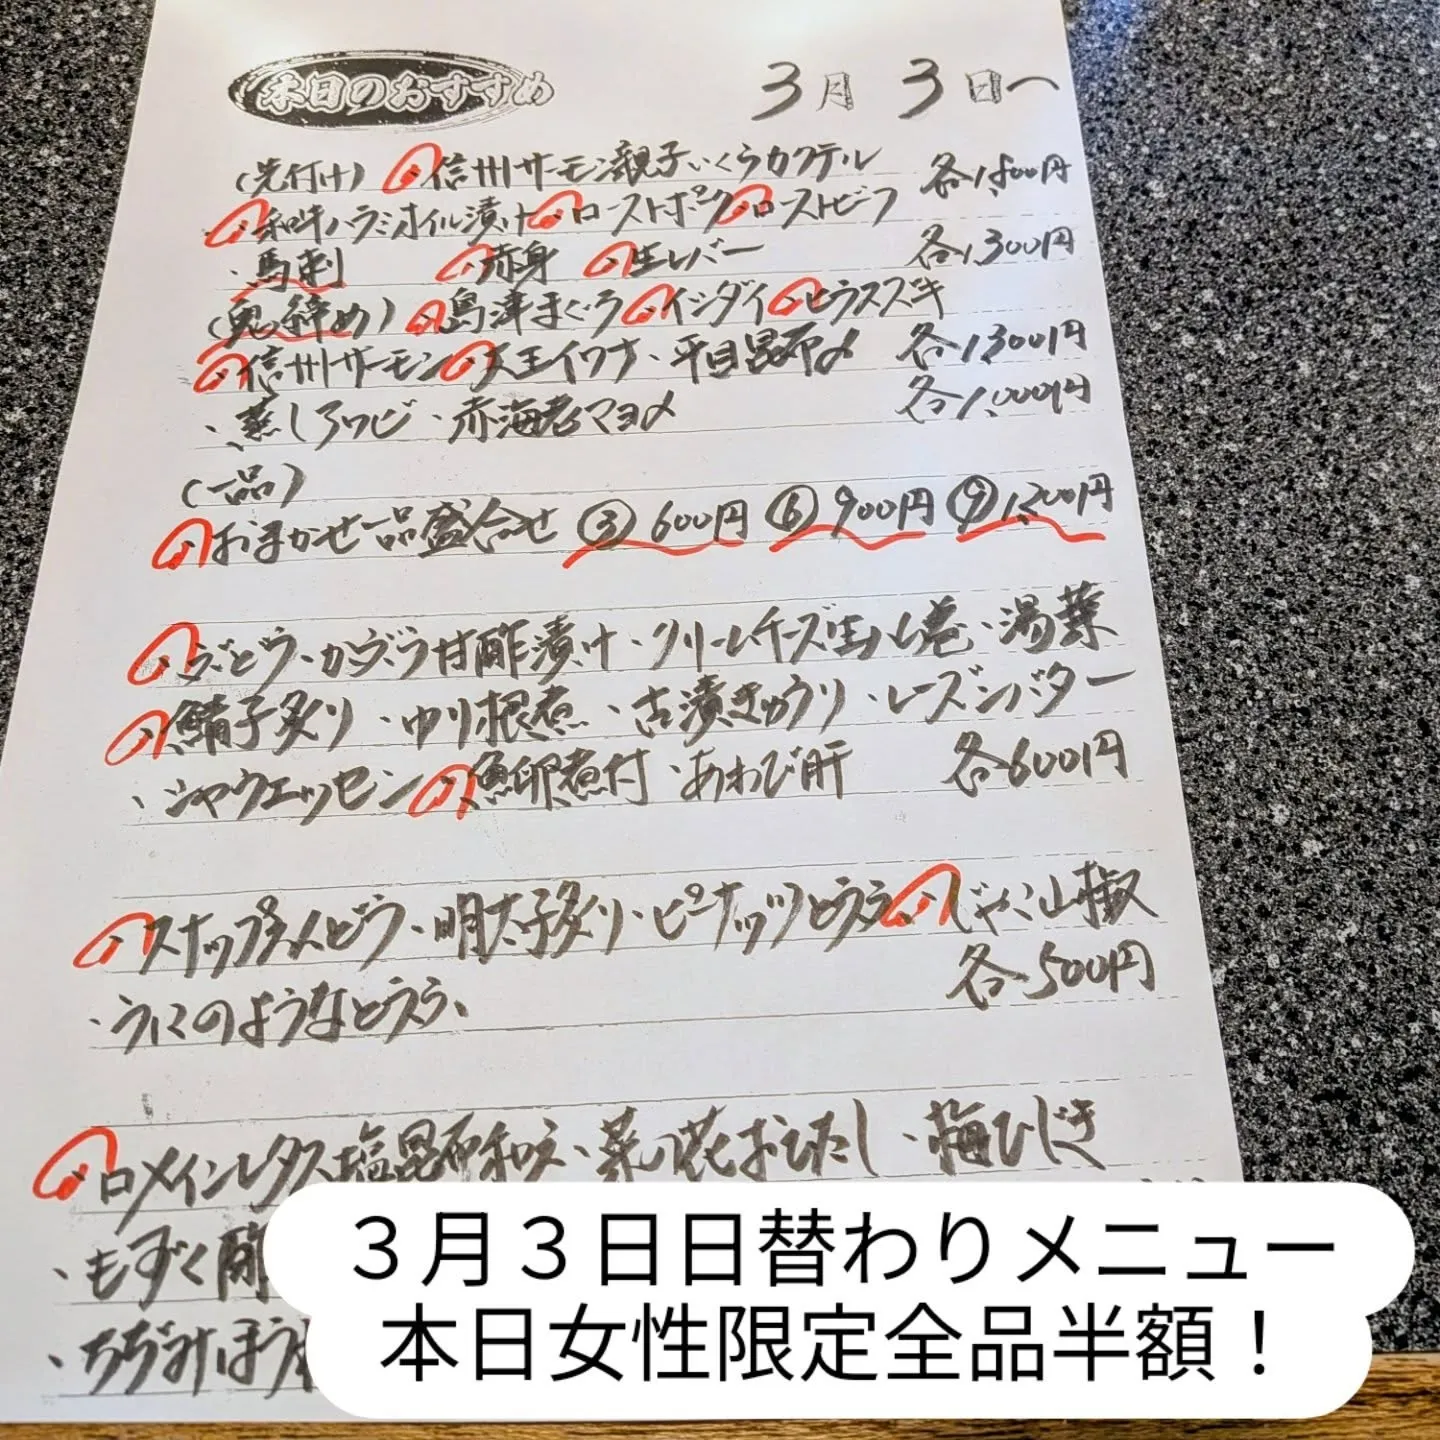 本日のおすすめ 3月3日〜
(先付け)・信州サーモン親子いくらカクテル 各1,800円
・和牛ハラミオイル漬け・ローストポーク・ローストビーフ
・馬刺 ・赤身 ・生レバー 各1,300円
(鬼締め)・島津まぐろ・イシダイ・ヒラスズキ
・信州サーモン・天王イワナ・平目昆布〆 各1,300円
・蒸しアワビ・赤海老マヨ〆 各1,000円
(一品)
・おまかせ一品盛合せ ③600円 ⑥900円 ⑨1,200円
・ぶどう・かぶら甘酢漬け・クリームチーズ生ハム巻・湯葉
・鯖子炙り・ゆり根煮・古漬きゅうり・レーズンバター
・シャウエッセン・魚卵煮付・あわび肝 各600円
・スナップえんどう・明太子炙り・ピーナッツとうふ・じゃこ山椒
・うにのようなとうふ 各500円
・ロメインレタス塩昆布和え・菜の花おひたし・梅ひじき
・もずく酢
・ちぢみほう
3月3日日替わりメニュー
本日女性限定全品半額！